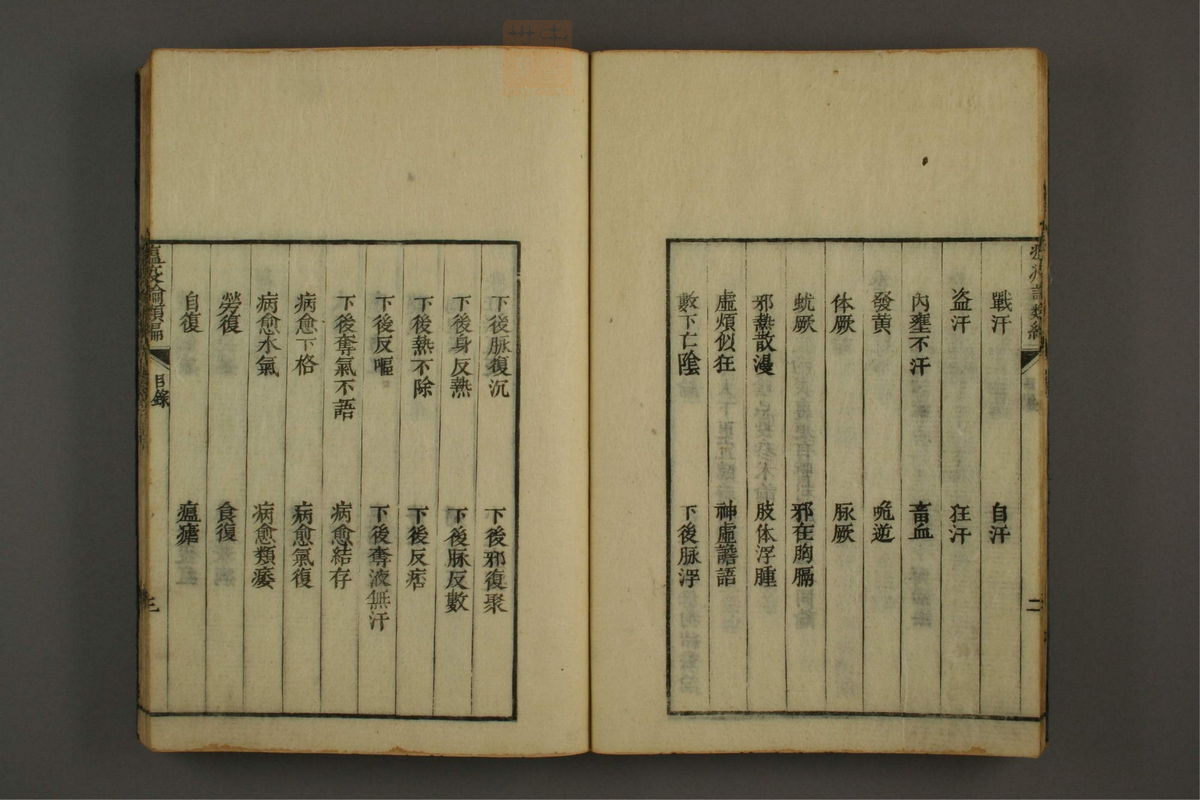 戰汗 自汗
盗汗 狂汗
內壅不汗 畜血
發黄 呃逆
体厥 脉厥
蚘厥 邪在胸膈
邪熱散漫 肢体浮腫
虛煩似狂 神虛譫語
數下亡陰 下後脉浮
二
下後脉復沉 下後邪復聚
下後身反熱 下後脉反數
下後熱不除 下後反痞
下後反嘔 下後奪液無汗
下後奪氣不語 病愈結存
病愈下格 病愈氣復
病愈水氣 病愈類痿
勞復 食復
自復 瘟瘧
瘟疫論類編 目錄 三